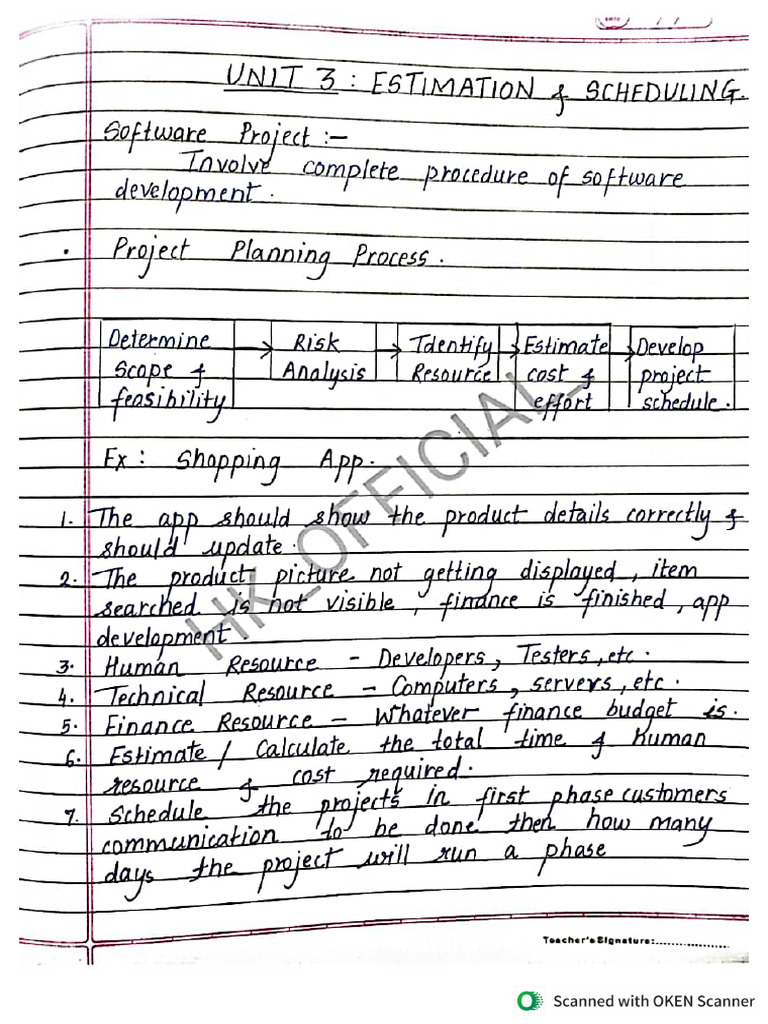 UNIT 3 : ESTIMATION & SCHEDULING.
Software Project :-
Involve complete procedure of software
development.
. Project Planning Process.
Determine Risk Identify Estimate Develop
Scope & Analysis Resource cost & project
feasibility effort schedule.
Ex : Shopping App.
1. The app should show the product details correctly &
should update.
2. The product picture not getting displayed, item
searched is not visible, finance is finished, app
development
3. Human Resource - Developers, Testers, etc.
4. Technical Resource - Computers, servers, etc.
5. Finance Resource - Whatever finance budget is.
6. Estimate / Calculate the total time & human
resource & cost required.
7. Schedule the projects in first phase customers
communication to be done then how many
days the project will run a phase
HK_OFFICIAL_
Teacher's Signature:...............
Scanned with OKEN Scanner